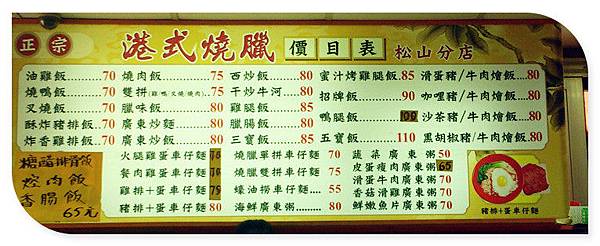 正宗 港式燒臘 價目表 松山分店
油雞飯......70 燒肉飯......75 西炒飯......80 蜜汁烤雞腿飯.85 滑蛋豬/牛肉燴飯..80
燒鴨飯......70 雙拼(雞/鴨/叉燒/燒肉)75 干炒牛河....80 招牌飯......90 咖哩豬/牛肉燴飯..80
叉燒飯......70 臘味飯......80 雞腿飯......85 鴨腿飯......100 沙茶豬/牛肉燴飯..80
酥炸豬排飯...70 廣東炒麵....80 臘腸飯......80 五寶飯......110 黑胡椒豬/牛肉燴飯.80
炸香雞排飯...70 廣東炒飯....80 三寶飯......85
糖醋排骨飯
焢肉飯
香腸飯
65元
火腿雞蛋車仔麵
餐肉雞蛋車仔麵
雞排+蛋車仔麵
豬排+蛋車仔麵 70
燒臘單拼車仔麵 70
燒臘雙拼車仔麵 75
蠔油撈車仔麵.... 55
海鮮廣東粥.... 70
蔬菜廣東粥50
皮蛋瘦肉廣東粥65
滑蛋牛肉廣東粥70
香菇滑雞廣東粥70
鮮嫩魚片廣東粥70
豬排+蛋車仔麵